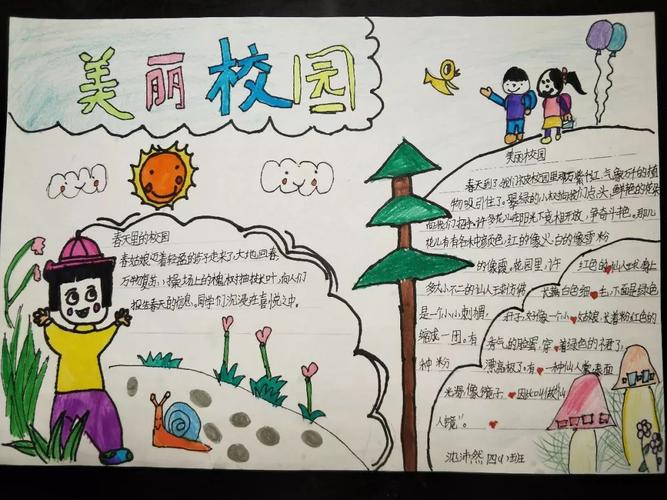 美丽校园
春天里的校园
春姑娘迈着轻盈的步子走来了,大地回春,
万物复苏,操场上的槐树抽枝长叶,向人们
报告春天的信息。同学们沉浸在喜悦之中。
美丽校园
春天到了,我们校校园里万紫千红,气象万千的植
物吸引住了。翠绿的小树向我们点头,鲜艳的
向我们招手,许多花儿在阳光下竞相开放,争奋斗艳。那儿
花儿有各种颜色,红的像火,白的像雪,粉
的像霞。花园里,许
多大小不一的仙人球仿佛
是一个个小刺猬,
缩成一团。有
种粉
红色的仙人球,看上
去,下面是绿色
好像一个小姑娘,长着粉红色的
香气的脸蛋,穿着绿色的
漂亮极了。有一种仙人掌,表面
光滑,像镜子,因此叫做仙
人镜"。
沈沛然 四(1)班